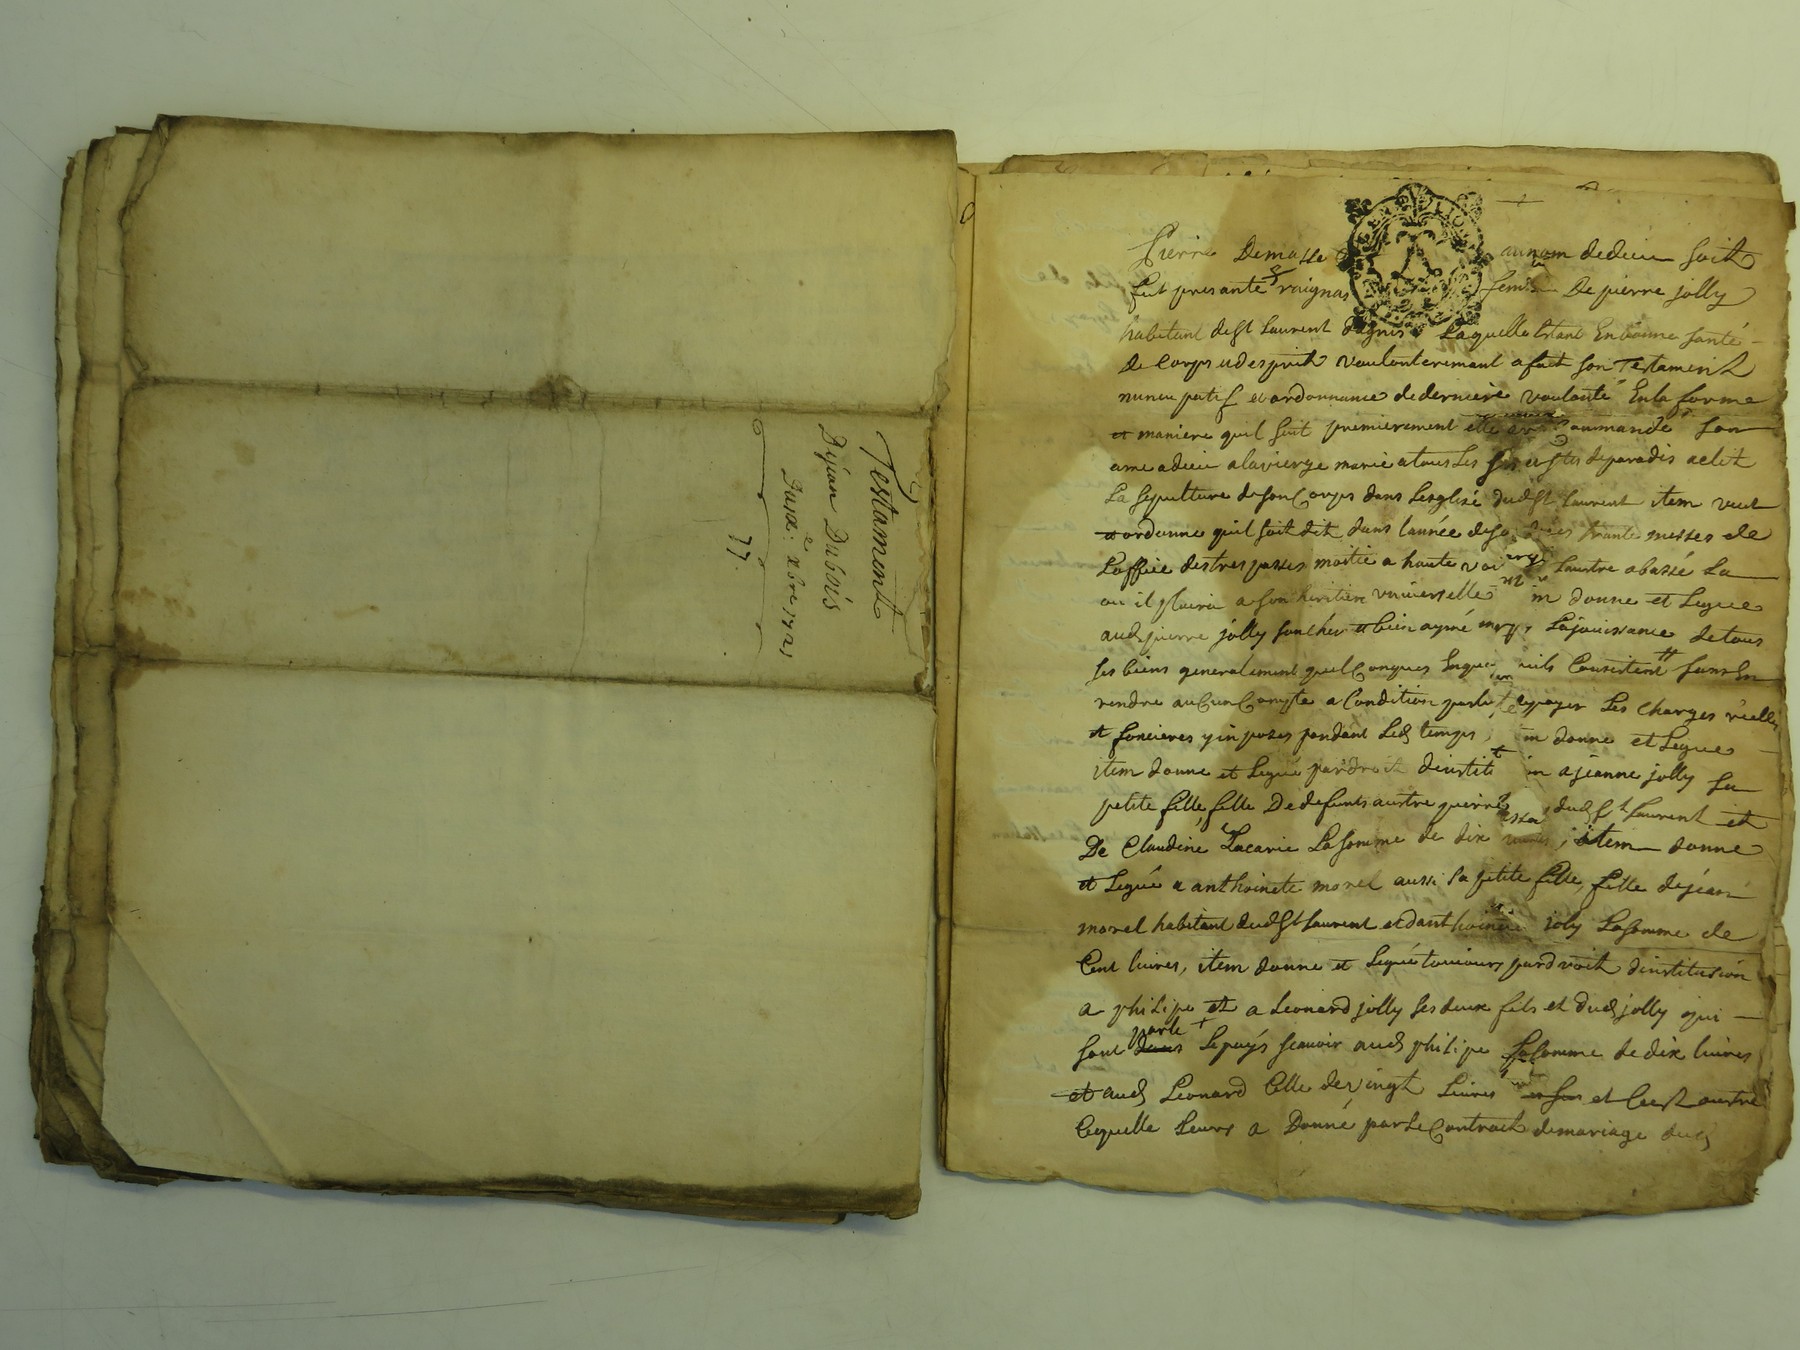 Testament
Dijan Dubois
xbre 1721
77.
Pierre Demasse au nom de dieu soit
fut presante femme De pierre jolly
habitant de st Laurent Laquelle estant En bonne santé
de corps et desprit voulonterement a fait son Testament
nuncupatif et ordonnance de derniere voulonté En la forme
et maniere quil suit premierement elle son
ame a dieu a la vierge marie a tous Les de paradis a elit
La sepulture de son Corps dans Lesglise dudt st Laurent item veut
et ordonne quil soit dit dans lannée de trante messes de
Loffice des trespasses moitié a haute voix Lautre a basse
ou il plaira a son heritiere universelle donne et Legue
aud pierre jolly son cher et bien aymé Lajouissance de tous
ses biens generalement quelconques Consistent sans En
rendre aucun Compte a Condition payer Les charges réelles
et foncieres pandant Led temps, donne et Legue
item donne et Legue par droit a jeanne jolly sa
petite fille, fille De defunts autre pierre dud st Laurent et
De Claudine Lacarie La somme de dix ; item donne
et Legue a anthoinete morel aussi sa petite fille, fille de jean
morel habitant dud st Laurent et danthoinete joly La somme de
Cent livres, item donne et Legue toujours par droit dinstitution
a philipe et a Leonard jolly ses deux fils et dud jolly qui
sont parte Le pays scavoir aud philipe La somme de dix livres
et aud Leonard Celle de vingt Livres et Cest autre
Ce quelle Leurs a Donné par Le Contrack de mariage dud